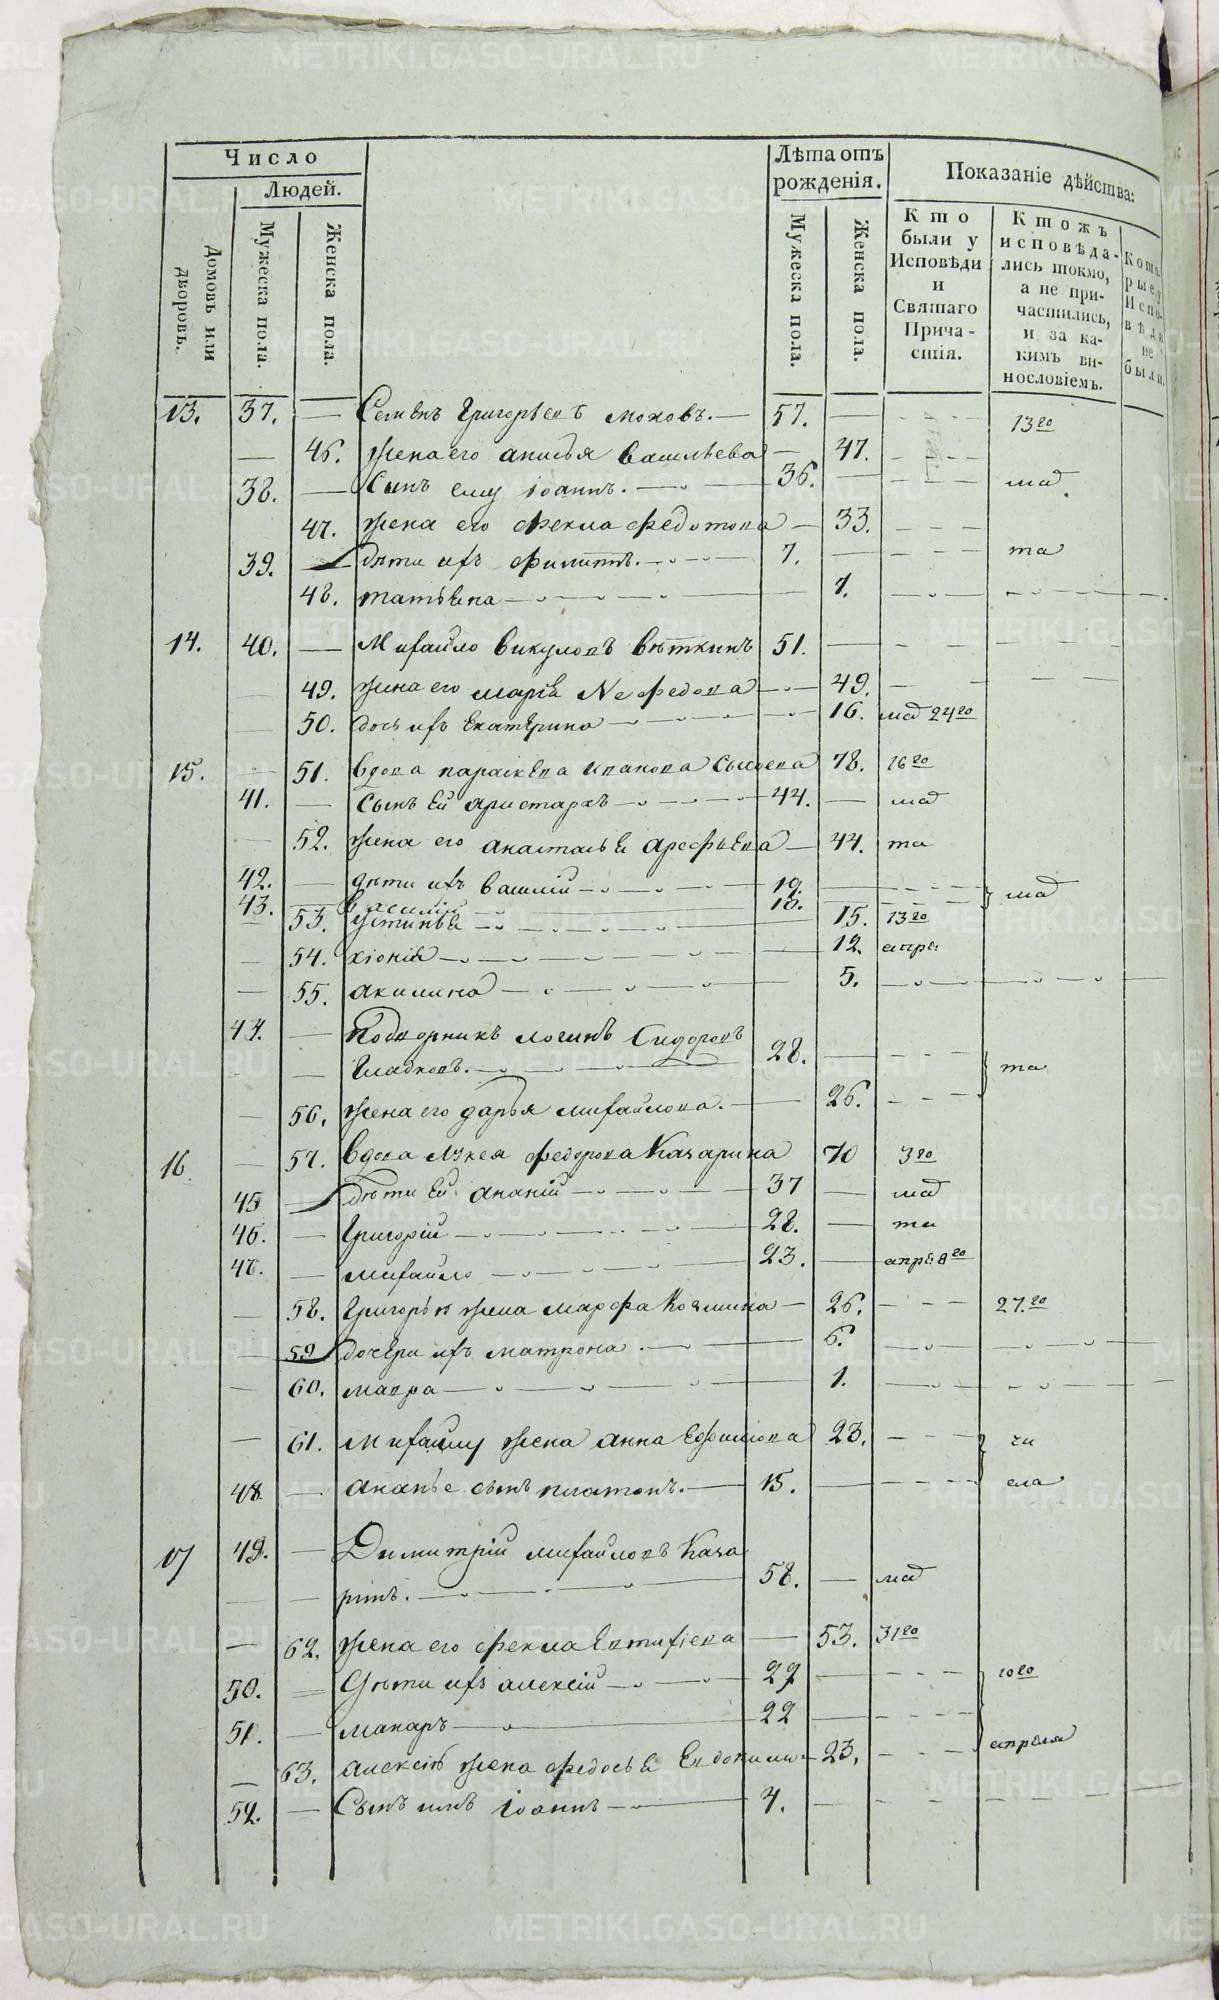 Число
Людей.
Домовъ или дворовъ.
Мужеска пола.
Женска пола.
Лѣта отъ рожденія.
Мужеска пола.
Женска пола.
Показаніе дѣйства:
Кто были у Исповѣди и Святаго Причастія.
Ктожъ исповѣдались токмо, а не причастились, и за какимъ винословіемъ.
Которые у Исповѣди не были.
13. 37. — Семенъ Григорьевъ Моховъ. — 57. 13го
46. жена его анисья васильева — 47.
38. — Сынъ ему іоаннъ. — 36. — маѣ
47. жена его фекла федотова — 33.
39. — дѣти ихъ филиппъ. — 7. — та
48. татьяна — 1.
14. 40. — Михайло викуловъ вяткинъ 51. —
49. жена его марія Нефедова — 49.
50. дочь ихъ екатерина — 16. маѣ 24го
15. — 51. вдова параскева иванова сысоева 78. 16го
41. — сынъ ей аристархъ — 44. — маѣ
52. жена его анастасья арефьева — 44. та
42. — дѣти ихъ василій — 19. — маѣ
43. — василій — 10.
53. устинья — 15. 13го
54. хіонія — 12. апре
55. акилина — 5.
44. — подворникъ логинъ Сидоровъ
Гладковъ. — 28. — та
56. жена его дарья михайлова. — 26.
16 — 57. вдова лукея федорова Качарина 70 3го
45 — дѣти ей ананій — 37 — маѣ
46. — Григорій — 28. — та
48. — михайло — 23. — апре 8го
58. Григорью жена марфа Козмина — 26. 27.го
59 дочери ихъ матрона. — 6.
60. мавра — 1.
61. Михайлу жена анна Ефимова 23. чи
48 — ананье сынъ платонъ. — 15. — сла
17 49. — Димитрій михайловъ Кача
ринъ. — 58. — маѣ
62. жена его фекла Евтифіева — 53. 31го
50. — Дѣти ихъ алексій — 27 — 10го
51. — макаръ — 22 —
63. алексію жена федосья Евдоким — 23. апреля
52. — Сынъ имъ іоаннъ — 4.
METRIKI.GASO-URAL.RU